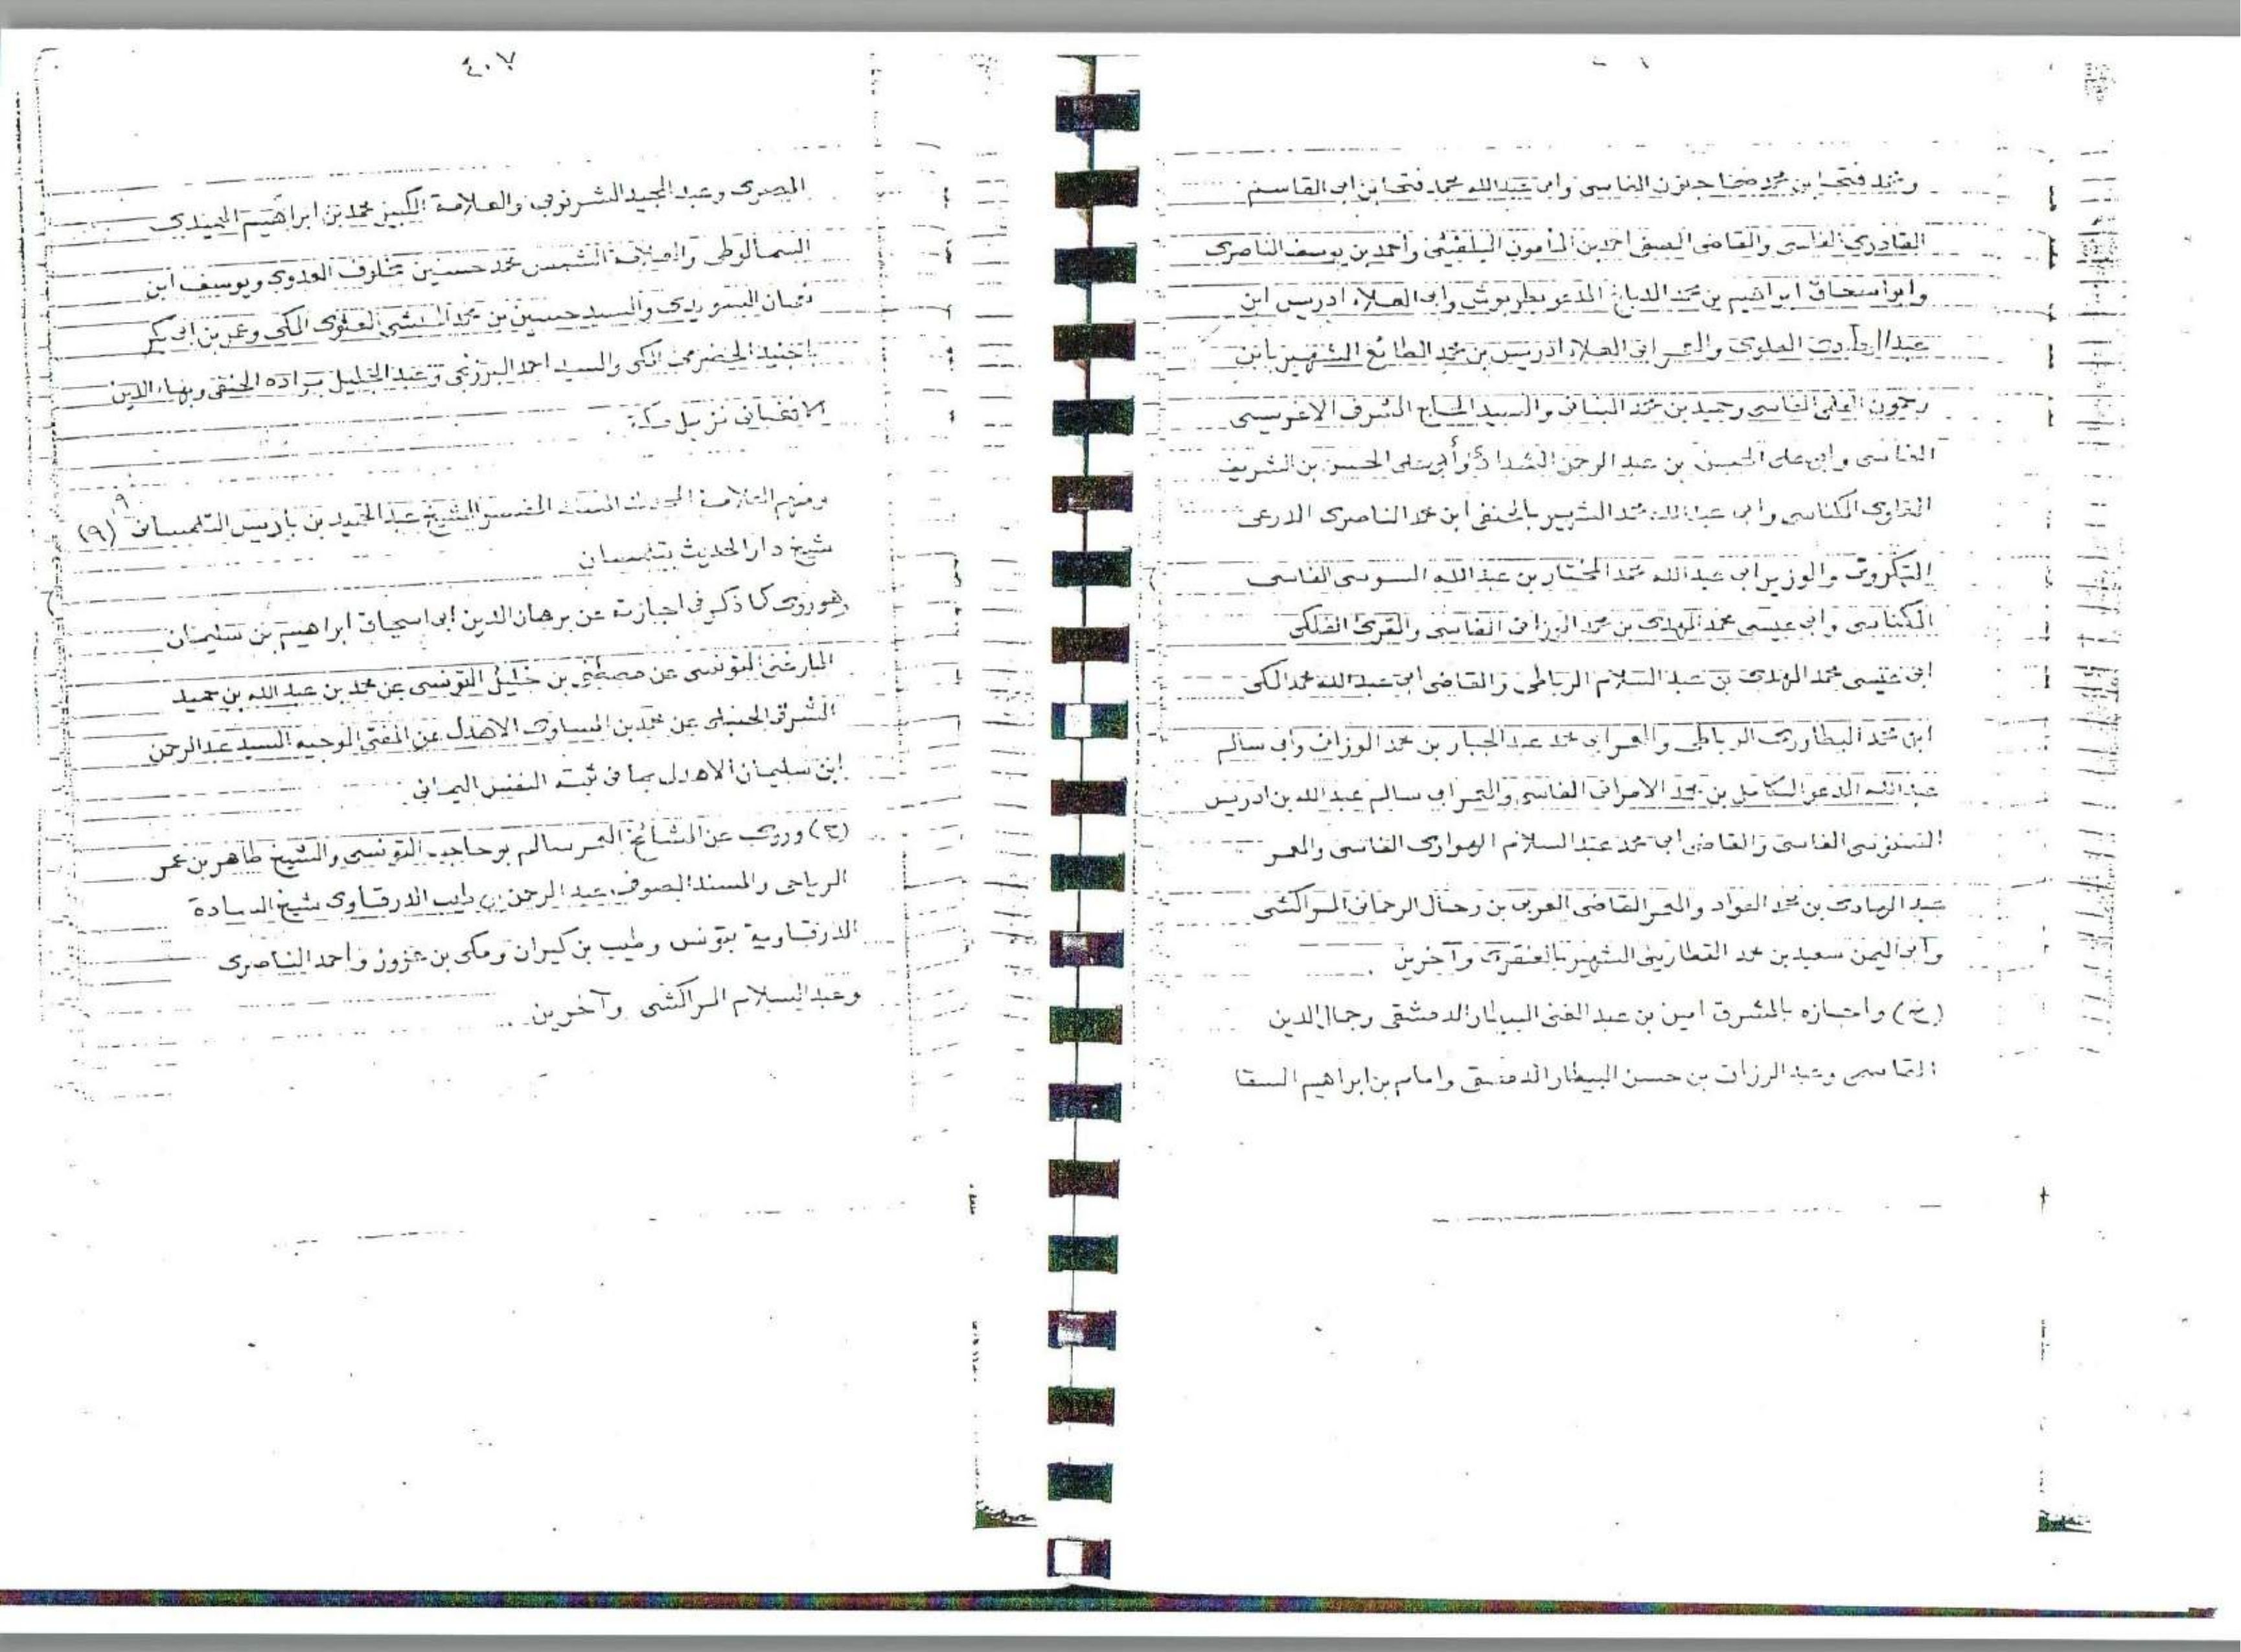 ومحمد فتحا بن محمد ضحا جنون الفاسى وابى عبدالله محمد فتحا بن ابى القاسم
القادرى الفاسى والقاضى الصفى احمد بن المأمون البلغيثى وأحمد بن يوسف الناصرى
وابو اسحاق ابراهيم بن محمد الدباغ المدعو بطربوش وابى العلاء ادريس ابن
العلوى والمعمر ابى العلاء ادريس بن محمد الطائع الشهير بابن
رحمون العلمى الفاسى وحميد بن محمد البنانى والسيد الحاج الشرف
الفاسى وابى على الحسن بن عبد الرحمن وأبى على الحسن بن الشريف
المكناسى وابى عبد الله محمد الشهير بالحنفى ابن محمد الناصرى الدرعى
والوزير ابى عبد الله محمد المختار بن عبد الله السوسى الفاسى
المكناسى وابى عيسى محمد المهدى بن محمد الوزانى الفاسى والمقرئ الفلكى
ابى عيسى محمد المهدى بن عبد السلام الرباطى والقاضى ابى عبد الله محمد المكى
ابن محمد البطاورى الرباطى والمعمر ابى محمد عبد الجبار بن محمد الوزانى وابى سالم
عبد الله المدعو الكامل بن محمد الامرانى الفاسى والمعمر ابى سالم عبد الله بن ادريس
السنوسى الفاسى والقاضى ابى محمد عبد السلام الهوارى الفاسى والمعمر
عبد الهادى بن محمد العواد والمعمر القاضى العربى بن رحال الرحمانى المراكشى
وابى اليمن سعيد بن محمد الشهير وآخرين
(ح) واجازه بالمشرق امين بن عبد الغنى البيطار الدمشقى وجمال الدين
القاسمى وعبد الرزاق بن حسن البيطار الدمشقى وامام بن ابراهيم السقا
٤٠٧
المصرى وعبد المجيد الشرنوبى والعلامة الكبير محمد بن ابراهيم الحميدى
السمالوطى والعلامة الشمس محمد حسنين مخلوف العدوى ويوسف ابن
والسيد حسين بن محمد الحبشى العلوى المكى وعمر بن ابى بكر
باجنيد الحضرمى المكى والسيد احمد البرزنجى وعبد الجليل براده الحنفى وبهاء الدين
الافغانى نزيل مكة
ومنهم العلامة المحدث المسند المفسر الشيخ عبد الحميد بن باديس التلمسانى (٩)
شيخ دار الحديث بتلمسان
وهو روى كما ذكر فى اجازته عن برهان الدين ابى اسحاق ابراهيم بن سليمان
المارغنى التونسى عن مصطفى بن خليل التونسى عن محمد بن عبد الله بن حميد
الشرقى الحنبلى عن محمد بن المساوى الاهدل عن المفتى الوجيه السيد عبد الرحمن
ابن سليمان الاهدل بما فى ثبته النفس اليمانى
(ح) وروى عن المشائخ المعمر سالم بوحاجب التونسى والشيخ طاهر بن عمر
الرياحى والمسند الصوفى عبد الرحمن بن الدرقاوى شيخ السادة
الدرقاوية بتونس وطيب بن كيران ومكى بن عزوز واحمد الناصرى
وعبد السلام المراكشى وآخرين